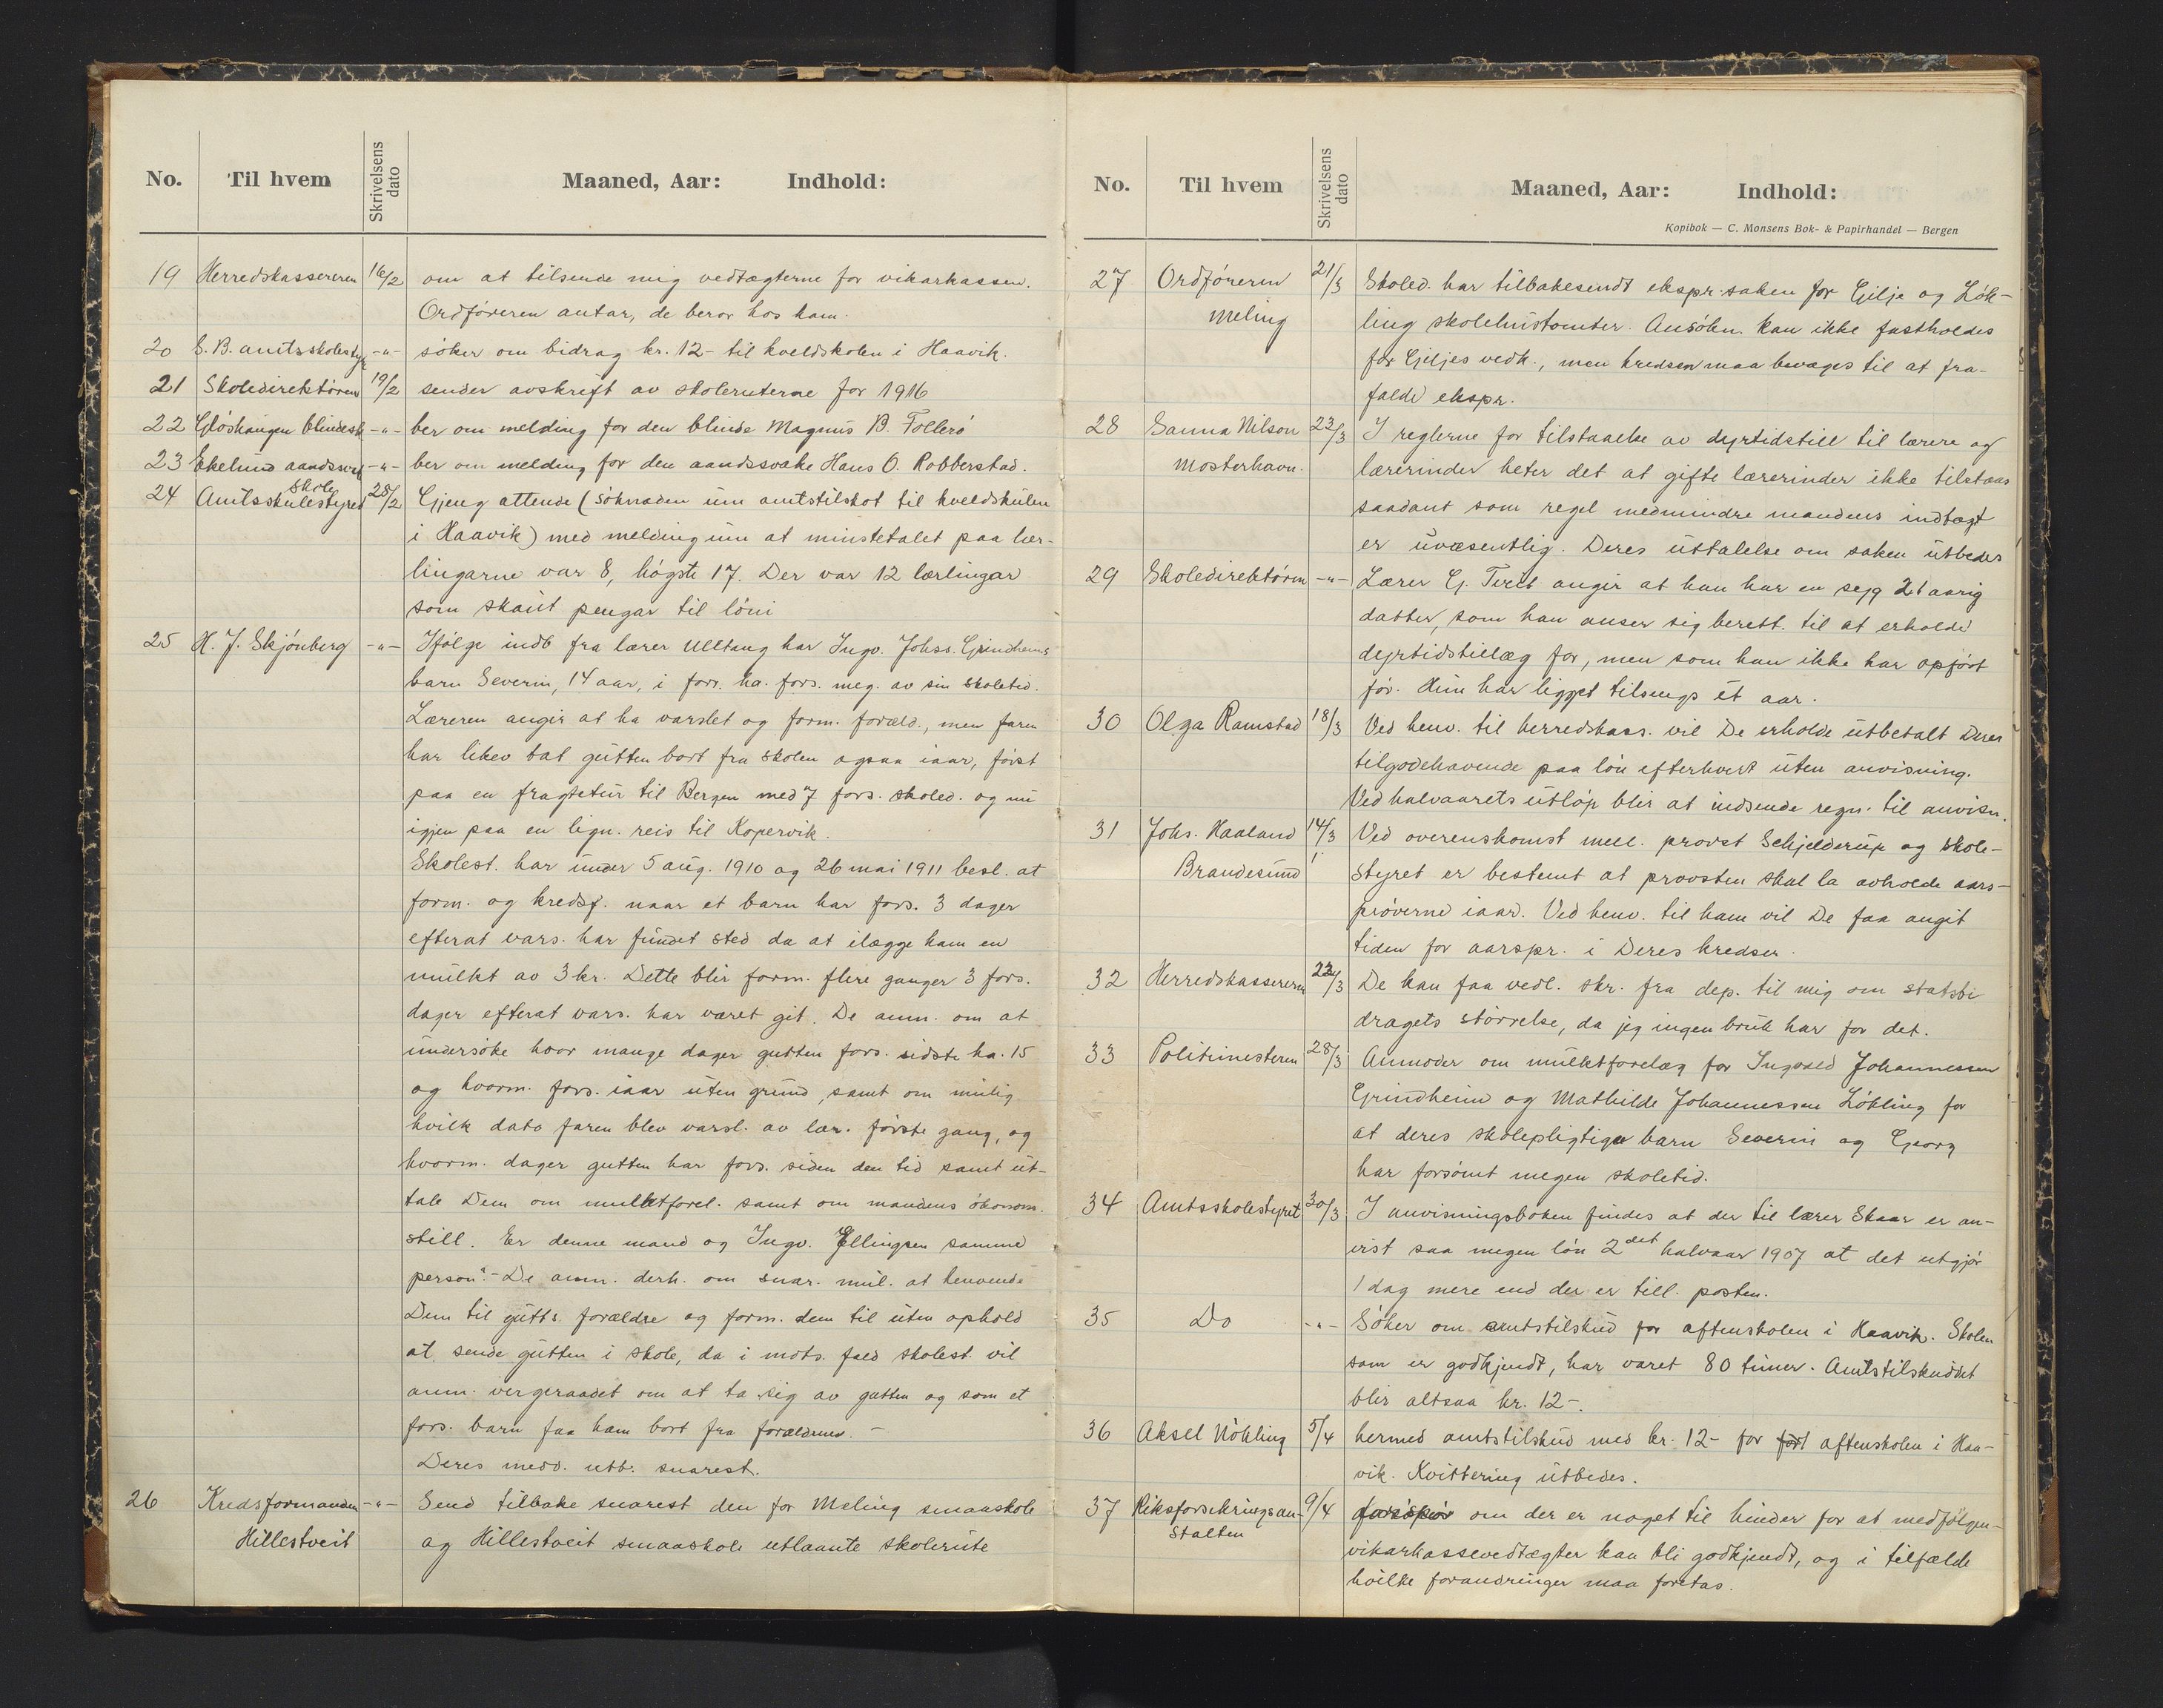 No. Til hvem Skrivelsens dato Maaned, Aar: Indhold:
19 Herredskassereren 16/2 om at tilsende mig vedtægterne for vikarkassen.
Ordføreren antar, de beror hos ham.
20 S. B. amtsskolestyr -"- søker om bidrag kr. 12- til kveldskolen i Haavik.
21 Skoledirektøren 19/2 sender avskrift av skoleruterne for 1916
22 Gløshaugen blindesk -"- ber om melding for den blinde Magnus B. Follerø
23 Ekelund aandssv -"- ber om melding for den aandssvake Hans O. Robberstad.
skole
24 Amtsskulestyret 28/2 Gjeng attende (søknaden um amtstilskot til kveldskulen
i Haavik) med melding um at minstetalet paa lær-
lingarne var 8, høgste 17. Der var 12 lærlingar
som skaut pengar til løni
25 H. J. Skjønberg -"- Ifølge indb fra lærer Ulltang har Ingv. Johss. Grindheims
barn Severin, 14 aar, i forr. ha. fors. meg. av sin skoletid.
Læreren angir at ha varslet og form. foræld., men faren
har likev tat gutten bort fra skolen ogsaa iaar, først
paa en fragtetur til Bergen med 7 fors. skoled. og nu
igjen paa en lign. reis til Kopervik.
Skolest. har under 5 aug. 1910 og 26 mai 1911 besl. at
form. og kredsf. naar et barn har fors. 3 dager
efterat vars. har fundet sted da at ilægge ham en
mulkt av 3 kr. Dette blir form. flere ganger 3 fors.
dager efterat vars. har været git. De anm. om at
undersøke hvor mange dager gutten fors. sidste ha. 15
og hvorm. fors. iaar uten grund, samt om mulig
hvilk dato faren blev varsl. av lær. første gang, og
hvorm. dager gutten har fors. siden den tid samt ut-
tale Dem om mulktforel. samt om mandens økonom.
still. Er denne mand og Ingv. Ellingsen samme
person? - De anm. derh. om snar. mul. at henvende
Dem til gutts. forældre og form. dem til uten ophold
at sende gutten i skole, da i mots. fald skolest. vil
anm. vergeraadet om at ta sig av gutten og som et
fors. barn faa ham bort fra forældrene. -
Deres medd. utb. snarest.
26 Kredsformanden -"- Send tilbake snarest den for Meling smaaskole
Hillestveit og Hillestveit smaaskole utlaante skolerute
No. Til hvem Skrivelsens dato Maaned, Aar: Indhold:
Kopibok — C. Monsens Bok- & Papirhandel — Bergen
27 Ordføreren 21/3 Skoled. har tilbakesendt ekspr.saken for Gilje og Løk-
Meling ling skolehustomter. Ansøkn. kan ikke fastholdes
for Giljes vedk., men kredsen maa bevæges til at fra-
falde ekspr.
28 Sanna Nilson 23/3 I reglerne for tilstaaelse av dyrtidstill til lærere og
Mosterhavn. lærerinder heter det at gifte lærerinder ikke tilstaaes
saadant som regel medmindre mandens indtægt
er uvæsentlig. Deres uttalelse om saken utbedes
29 Skoledirektøren -"- Lærer G. Tveit angir at han har en syg 21 aarig
datter, som han anser sig berett. til at erholde
dyrtidstillæg for, men som han ikke har opført
før. Hun har ligget tilsengs et aar.
30 Olga Ramstad 18/3 Ved henv. til herredskass. vil De erholde utbetalt Deres
tilgodehavende paa løn efterhvert uten anvisning.
Ved halvaarets utløp blir at indsende regn. til anvisn.
31 Johs. Haaland 14/3 Ved overenskomst mell. provst Schjelderup og skole-
Brandesund styret er bestemt at provsten skal la avholde aars-
prøverne iaar. Ved henv. til ham vil De faa angit
tiden for aarspr. i Deres kredser.
32 Herredskassereren 22/3 De kan faa vedl. skr. fra dep. til mig om statsbi
dragets størrelse, da jeg ingen bruk har for det.
33 Politimesteren 28/3 Anmoder om mulktforelæg for Ingvald Johannessen
Grindheim og Mathilde Johannessen Løkling for
at deres skolepligtige barn Severin og Georg
har forsømt megen skoletid.
34 Amtsskolestyret 30/3 I anvisningsboken findes at der til lærer Skaar er an-
vist saa megen løn 2det halvaar 1907 at det utgjør
1 dag mere end der er till. posten.
35 Do -"- Søker om amtstilskud for aftenskolen i Haavik. Skolen
som er godkjendt, har varet 80 timer. Amtstilskuddet
blir altsaa kr. 12-.
36 Aksel Nökling 5/4 hermed amtstilskud med kr. 12- for aftenskolen i Haa-
vik. Kvittering utbedes.
37 Riksforsikringsan- 9/4 om der er noget til hinder for at medfølgen-
stalten vikarkassevedtægter kan bli godkjendt, og i tilfælde
hvilke forandringer maa foretas.